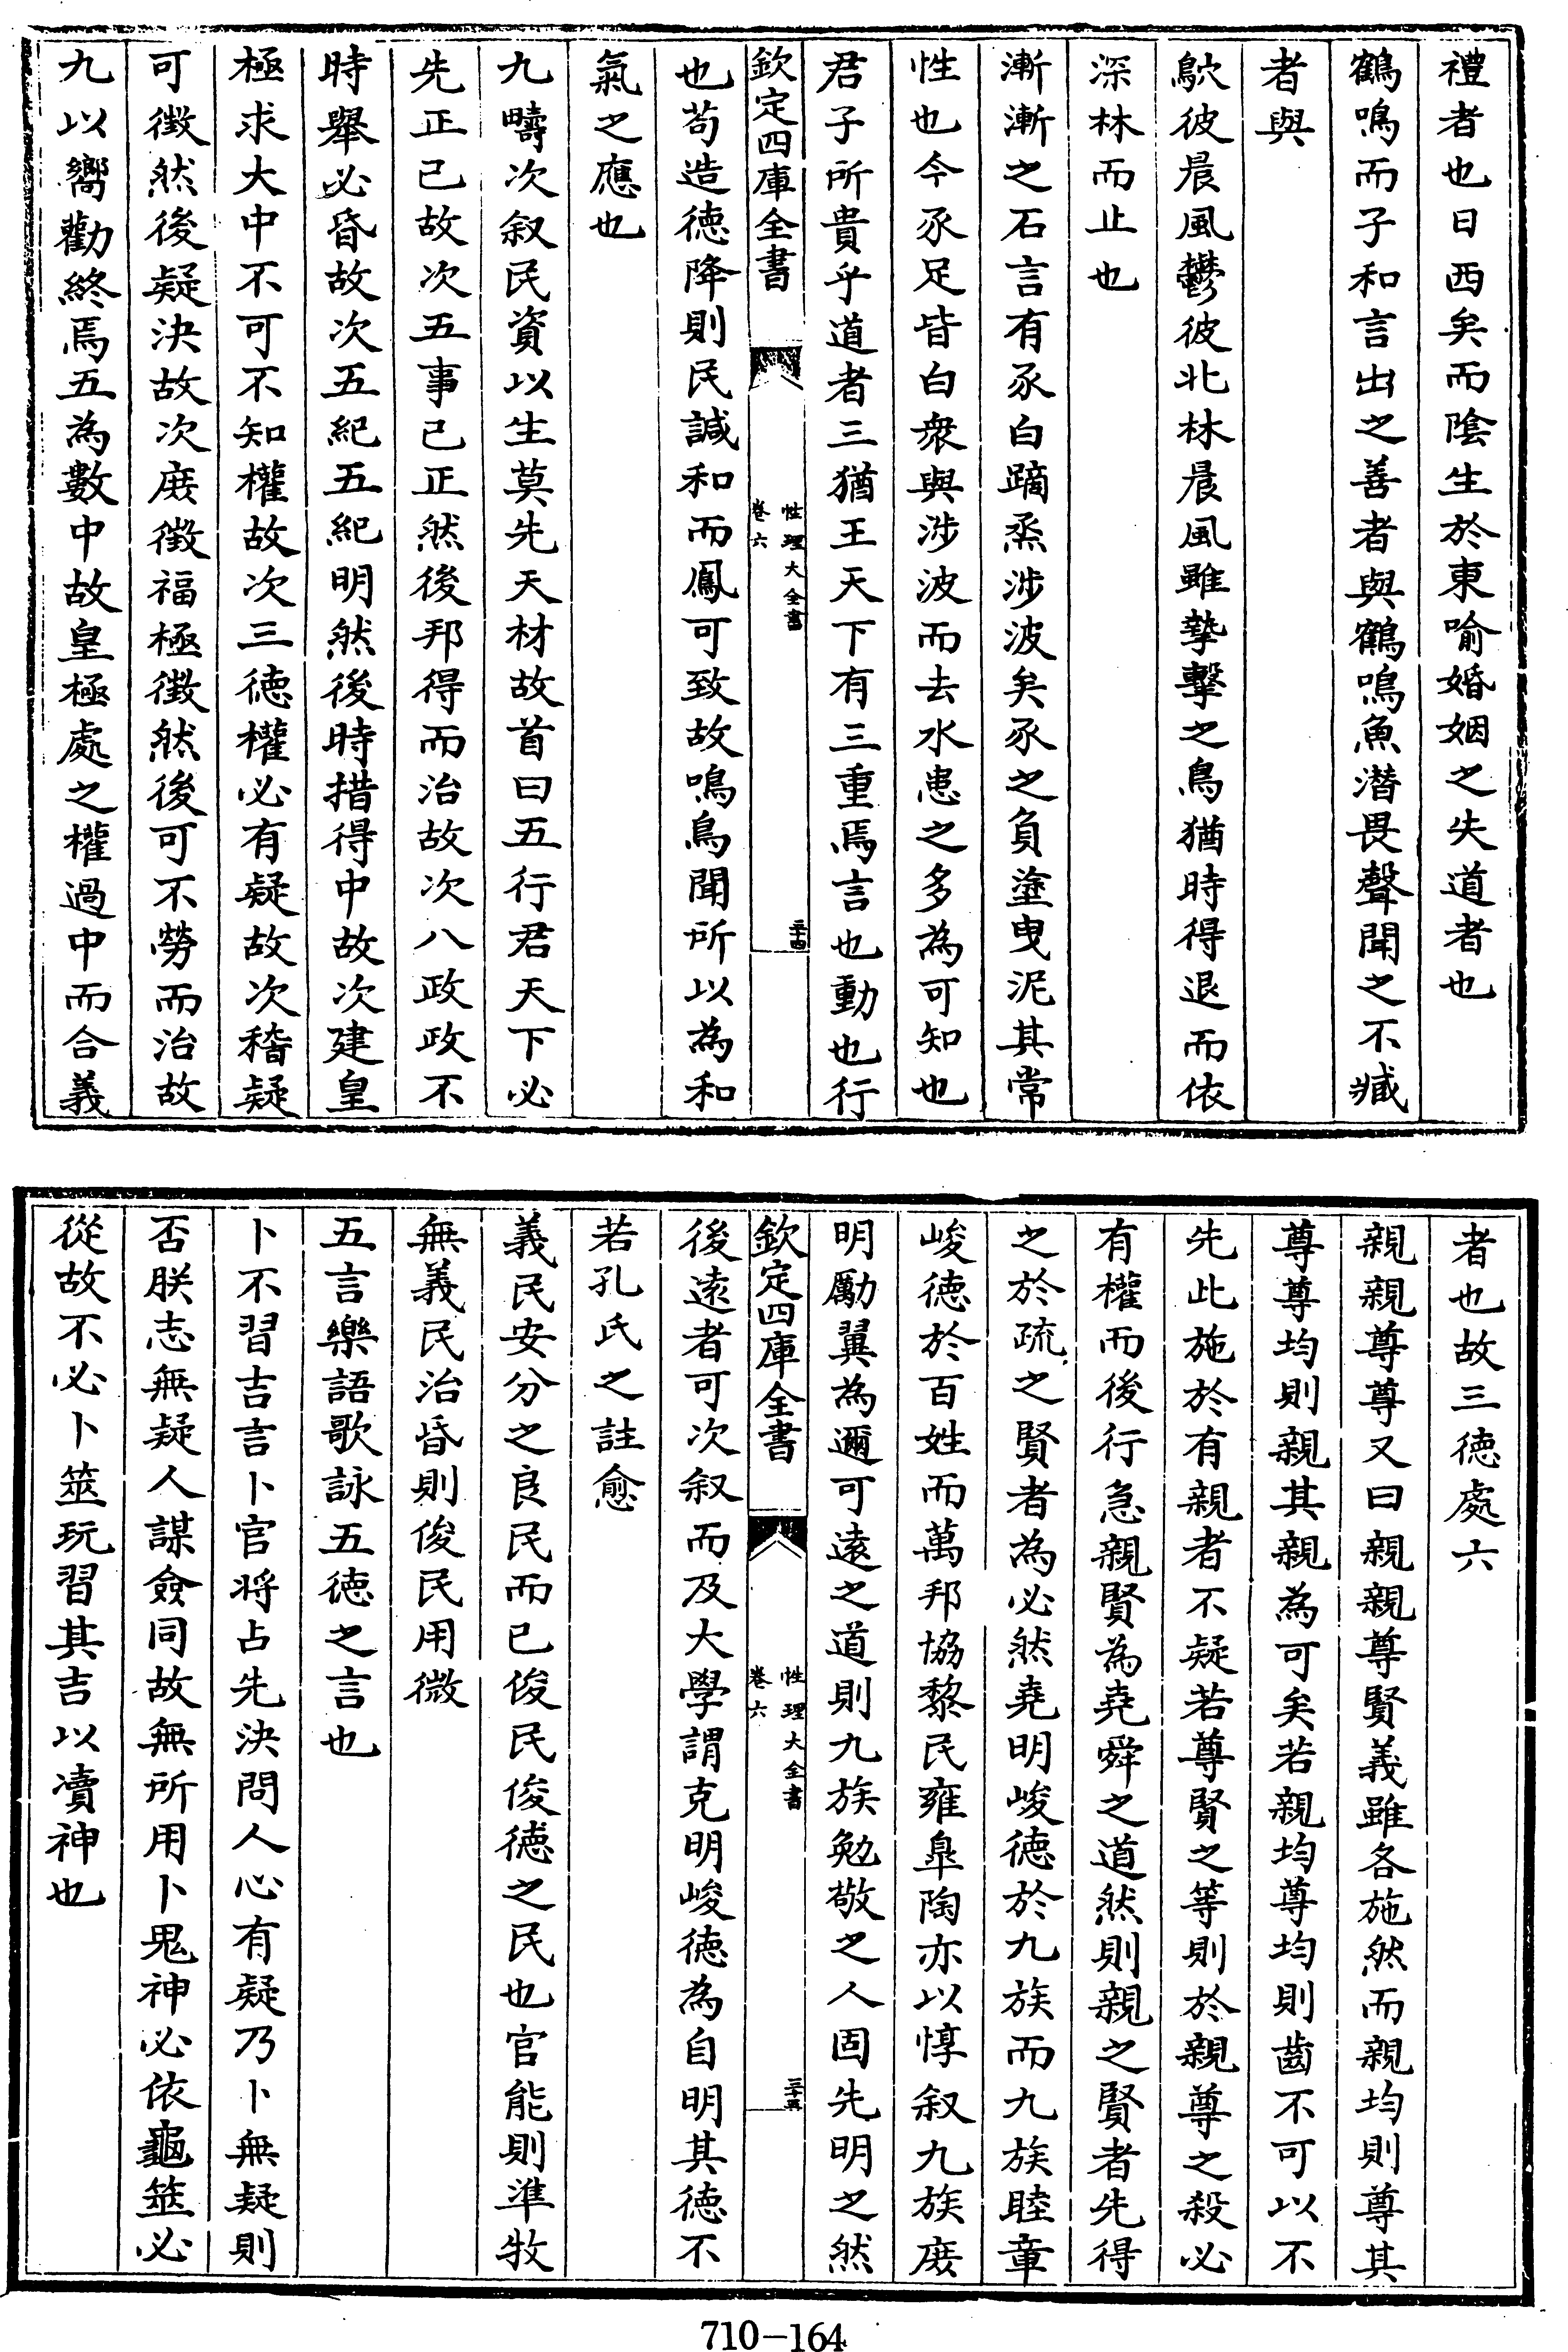 禮者也日西矣而陰生於東喻婚姻之失道者也
鶴鳴而子和言出之善者與鶴鳴魚潜畏聲聞之不臧
者與
鴥彼晨風鬱彼北林晨風雖摯擊之鳥猶時得退而依
深林而止也
漸漸之石言有豕白蹢烝涉波矣豕之負塗曳泥其常
性也今豕足皆白衆與涉波而去水患之多為可知也
君子所貴乎道者三猶王天下有三重焉言也動也行
欽定四庫全書
性理大全書
卷六
三十四
也苟造德降則民諴和而鳳可致故鳴鳥聞所以為和
氣之應也
九疇次叙民資以生莫先天材故首曰五行君天下必
先正己故次五事己正然後邦得而治故次八政政不
時舉必昏故次五紀五紀明然後時措得中故次建皇
極求大中不可不知權故次三德權必有疑故次稽疑
可徵然後疑決故次庶徵福極徵然後可不勞而治故
九以嚮勸終焉五為數中故皇極處之權過中而合義
者也故三德處六
親親尊尊又曰親親尊賢義雖各施然而親均則尊其
尊尊均則親其親為可矣若親均尊均則齒不可以不
先此施於有親者不疑若尊賢之等則於親尊之殺必
有權而後行急親賢為堯舜之道然則親之賢者先得
之於疏之賢者為必然堯明峻德於九族而九族睦章
峻德於百姓而萬邦協黎民雍臯陶亦以惇叙九族庶
明勵翼為邇可遠之道則九族勉敬之人固先明之然
欽定四庫全書
性理大全書
卷六
三十五
後遠者可次叙而及大學謂克明峻德為自明其德不
若孔氏之註愈
義民安分之良民而已俊民俊德之民也官能則準牧
無義民治昏則俊民用微
五言樂語歌詠五德之言也
卜不習吉言卜官將占先決問人心有疑乃卜無疑則
否朕志無疑人謀僉同故無所用卜鬼神必依龜筮必
從故不必卜筮玩習其吉以瀆神也
710-164